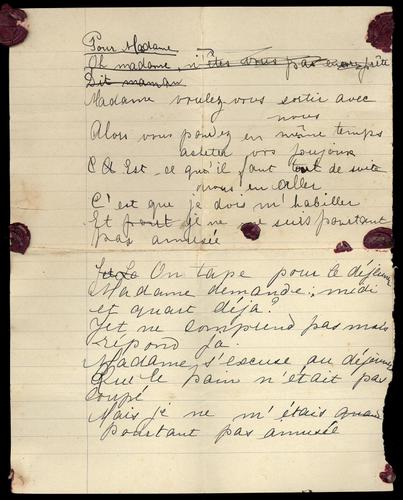 Pour Madame
Oh madame, n'êtes vous pas encore prête
Dit maman
Madame voulez-vous sortir avec
nous
Alors vous pouvez en même temps
acheter vos joujoux
C & Est-ce qu'il faut tout de suite
nous en aller
C'est que je dois m'habiller
Et pourt je ne me suis pourtant
pas amusée
On tape pour le déjeuner
Madame demande: midi
et quart déjà?
Jet ne comprend pas mais
répond ja.
Madame s'excuse au déjeuner
Que le pain n'était pas
coupé
Mais je ne m'étais quand
pourtant pas amusée